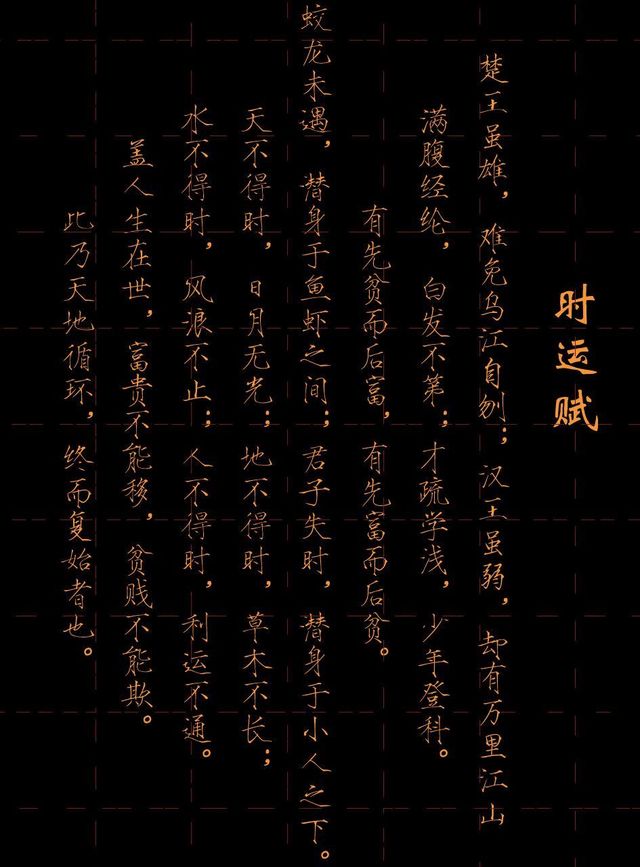 时运赋
楚王虽雄，难免乌江自刎；汉王虽弱，却有万里江山
满腹经纶，白发不第；才疏学浅，少年登科。
有先贫而后富，有先富而后贫。
蛟龙未遇，替身于鱼虾之间；君子失时，替身于小人之下。
天不得时，日月无光；地不得时，草木不长；
水不得时，风浪不止；人不得时，利运不通。
盖人生在世，富贵不能移，贫贱不能欺。
此乃天地循环，终而复始者也。